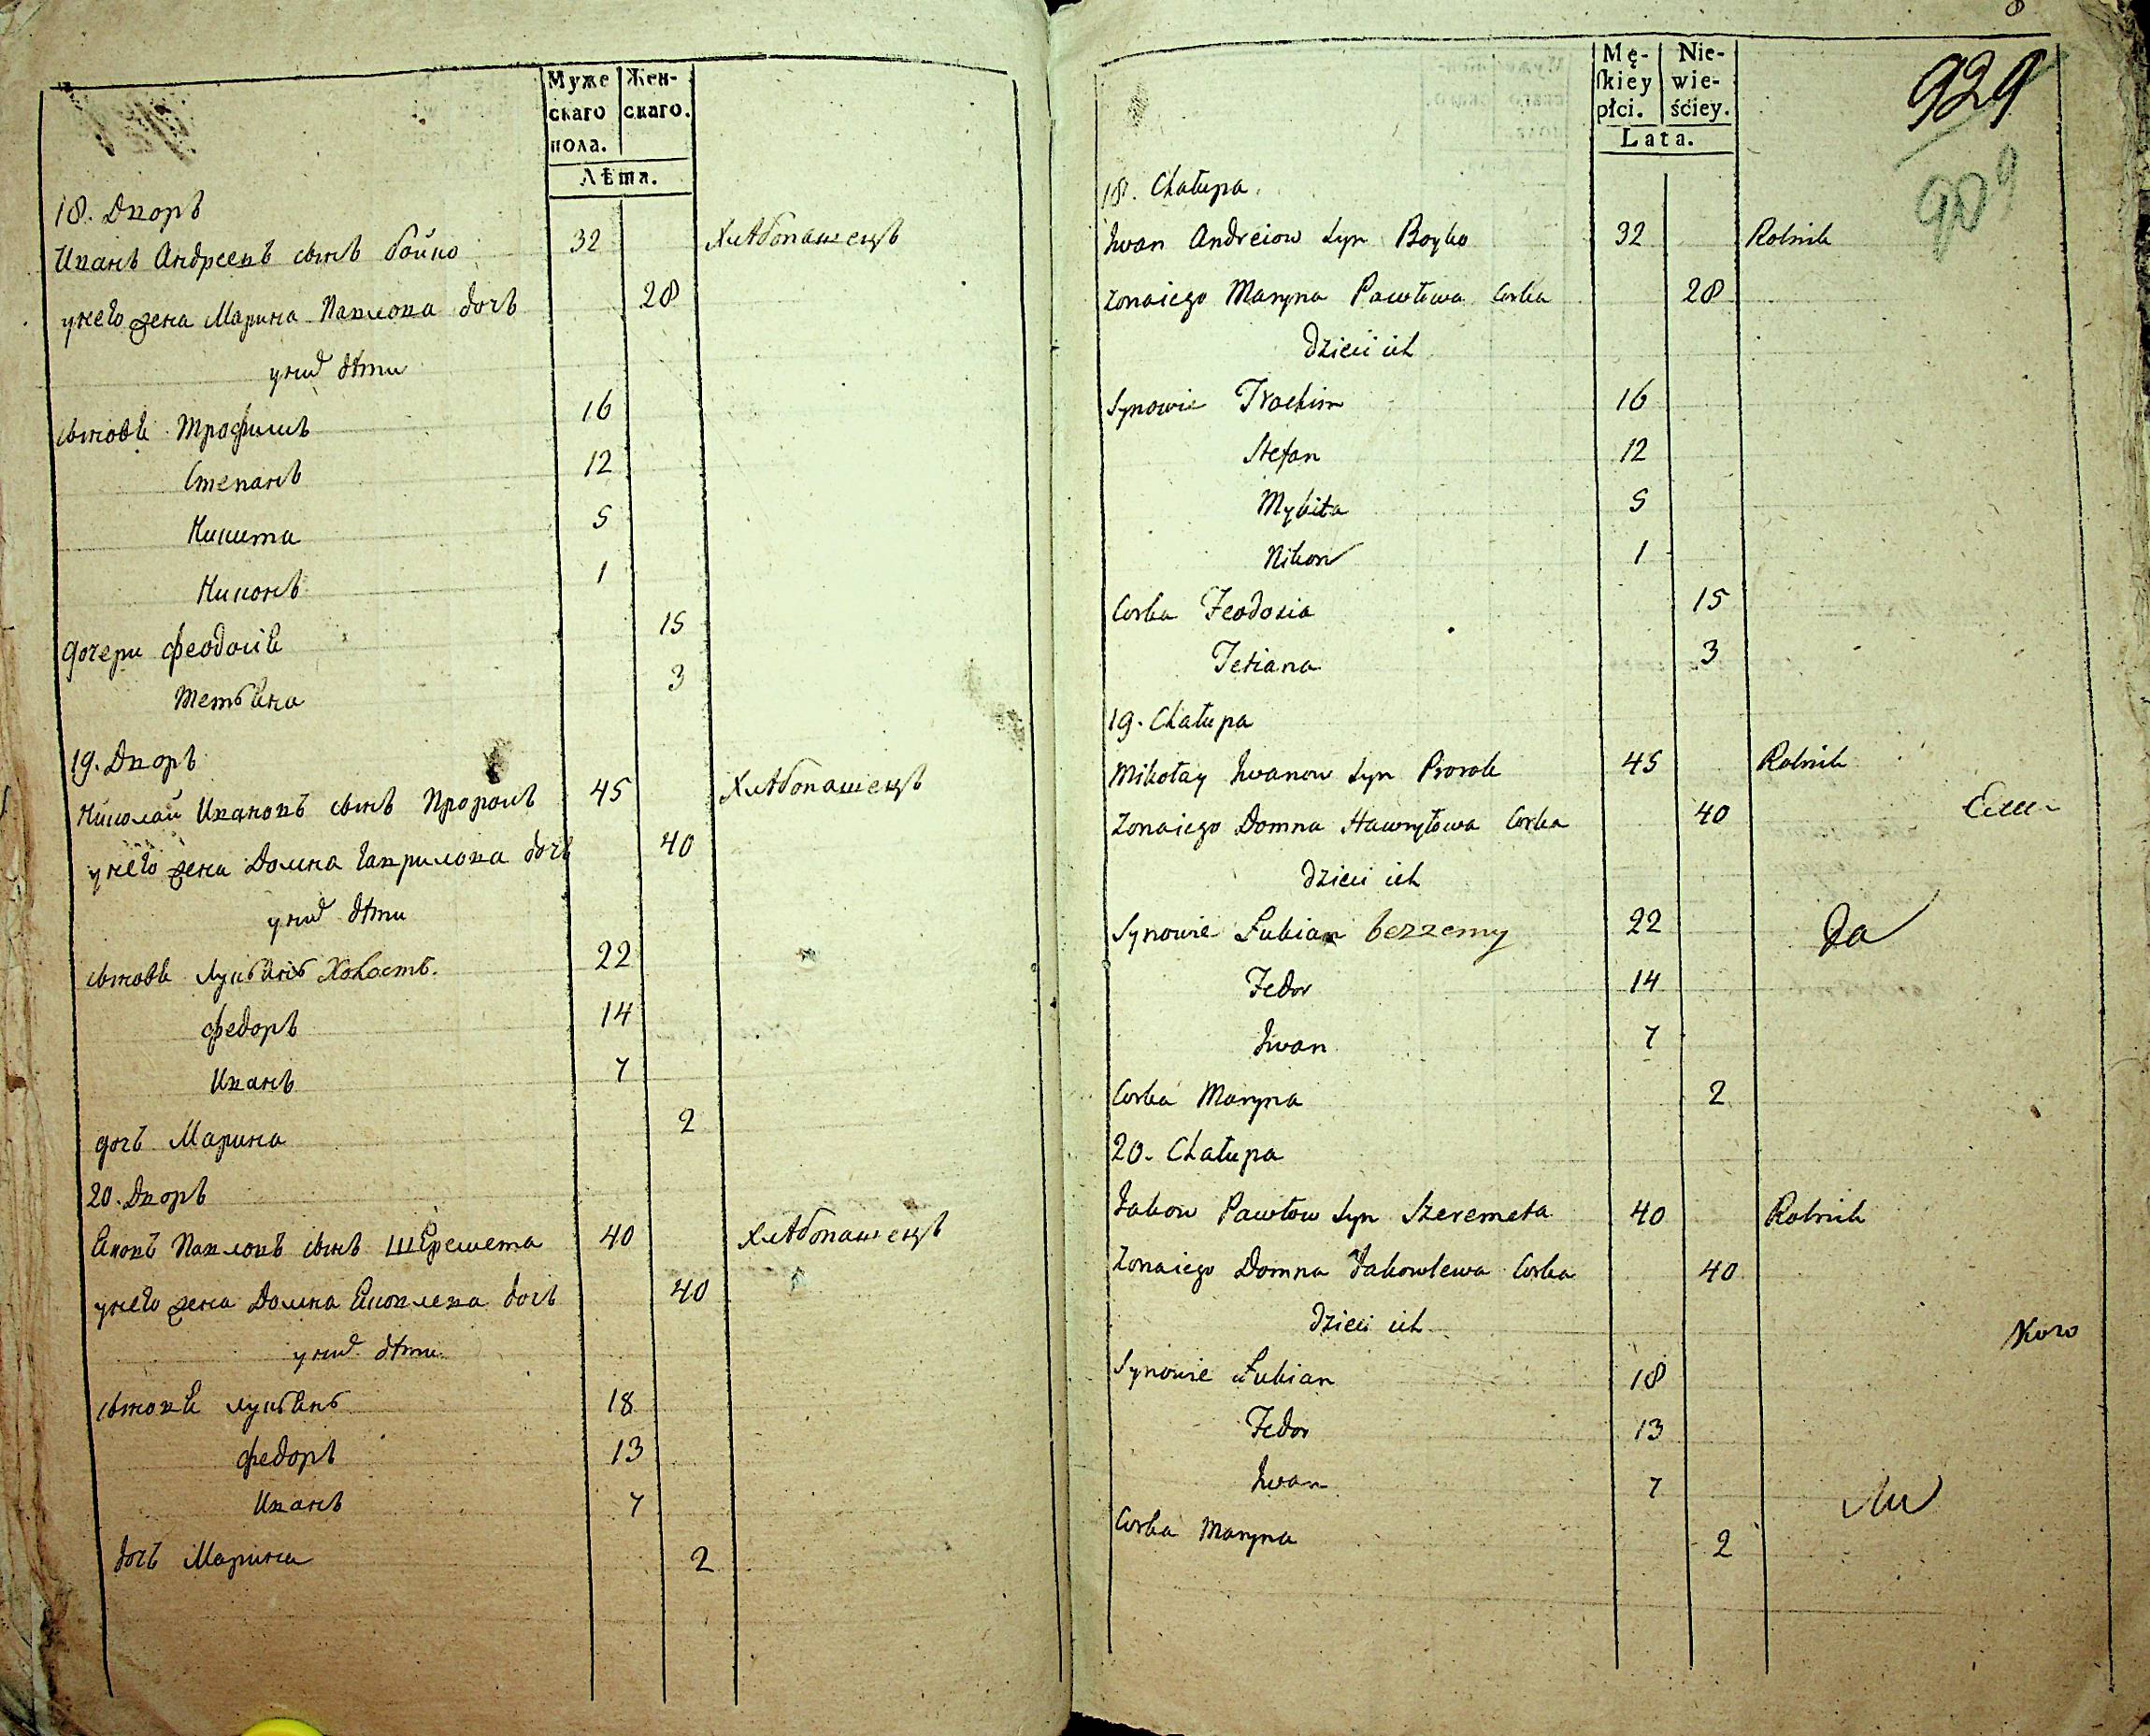 Муже
скаго
пола.
Жен-
скаго.
Лѣта.
18. Дворъ
Иванъ Андреевъ сынъ бойко 32 Хлѣбопашецъ
унего жена Марина Павлова дочь 28
уних дѣти
сыновѣ Трофимъ 16
Степанъ 12
Никита 5
Никонъ 1
дочери феодосiѣ 15
Тетьѣна 3
19. Дворъ
Николай Ивановъ сынъ Пророкъ 45 Хлѣбопашецъ
унего жена Домна Гаврилова дочь 40
уних дѣти
сыновѣ Лукьѣнъ Холостъ. 22
федоръ 14
Иванъ 7
дочь Марина 2
20. Дворъ
Ѣковъ Павловъ сынъ Шеремета 40 Хлѣбопашецъ
унего жена Домна Ѣковлева дочь 40
уних дѣти
сыновѣ Лукьѣнъ 18
федоръ 13
Иванъ 7
дочь Марина 2
8
Mę-
skiey
płci.
Nie-
wie-
ściey.
Lata.
929
909
18. Chałupa
Iwan Andreiow Syn Boyko 32 Rolnik
Zonaiego Maryna Pawłowa Corka 28
Dzieci ich
Synowie Trochim 16
Stefan 12
Mykita 5
Nikon 1
Corka Feodozia 15
Tetiana 3
19. Chałupa
Mikołay Iwanow Syn Prorok 45 Rolnik
Zonaiego Domna Hawryłowa Corka 40
Dzieci ich
Synowie Łukian bezzenny 22 Да
Fedor 14
Iwan 7
Corka Maryna 2
20. Chałupa
Iakow Pawłow Syn Szeremeta 40 Rolnik
Zonaiego Domna Iakowlewa Corka 40
Dzieci ich
Synowie Łukian 18
Fedor 13
Iwan 7
Corka Maryna 2